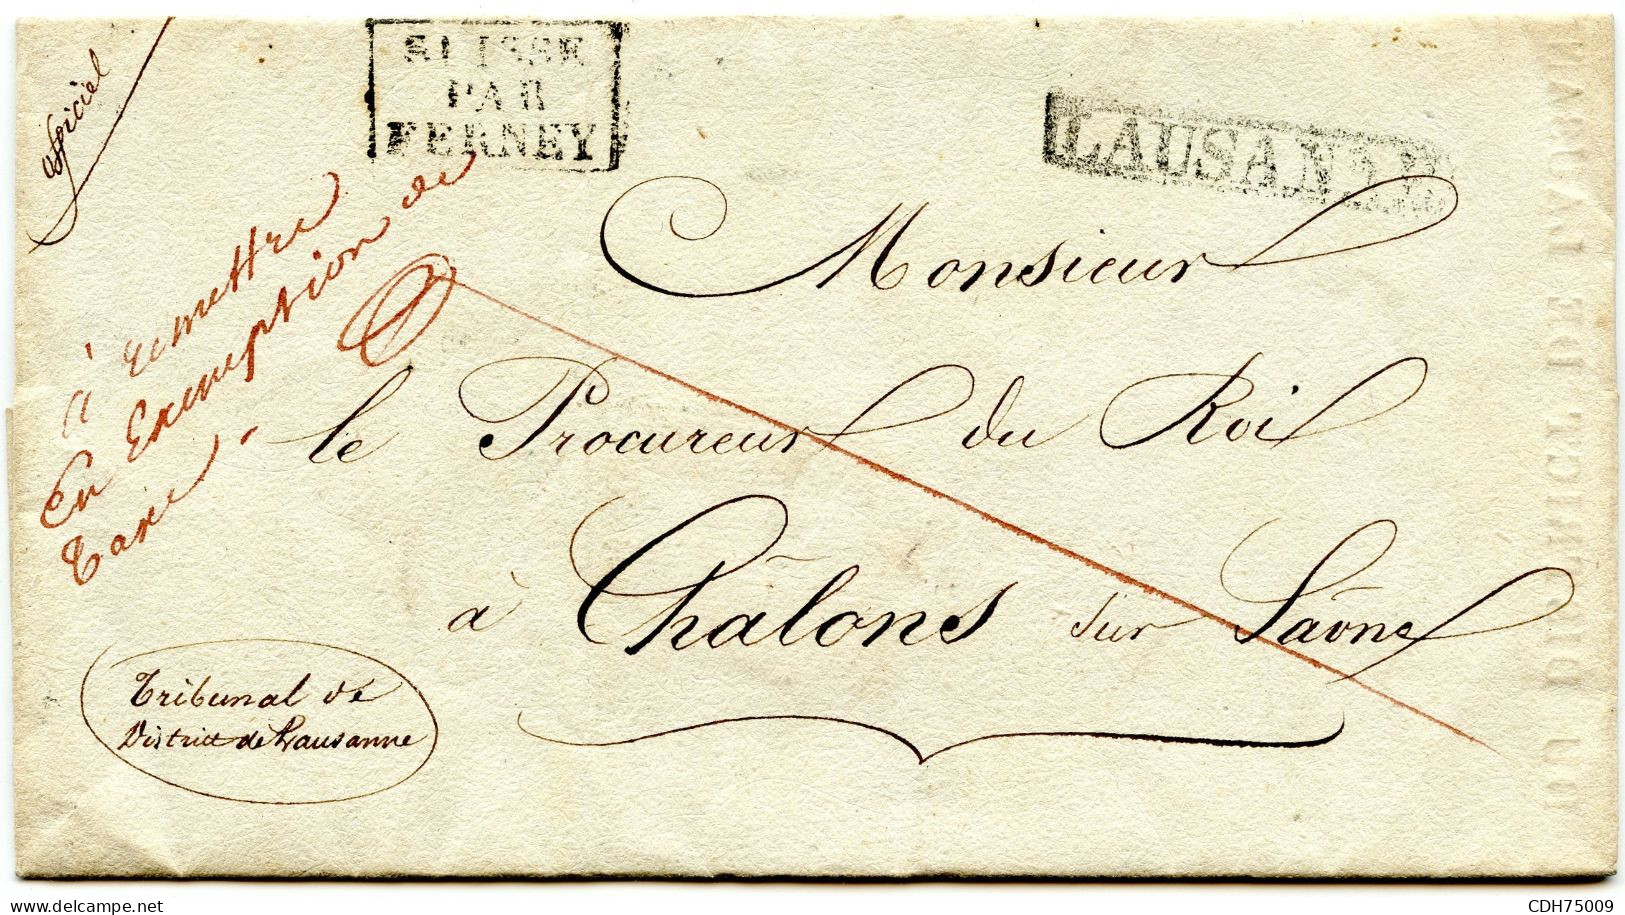 officiel
SUISSE
PAR
FERNEY
LAUSANNE
à remettre
En Exemption de
Taxe.
Monsieur
le Procureur du Roi
à Châlons sur Saône
Tribunal de
District de Lausanne
delcampe.net
CDH75009